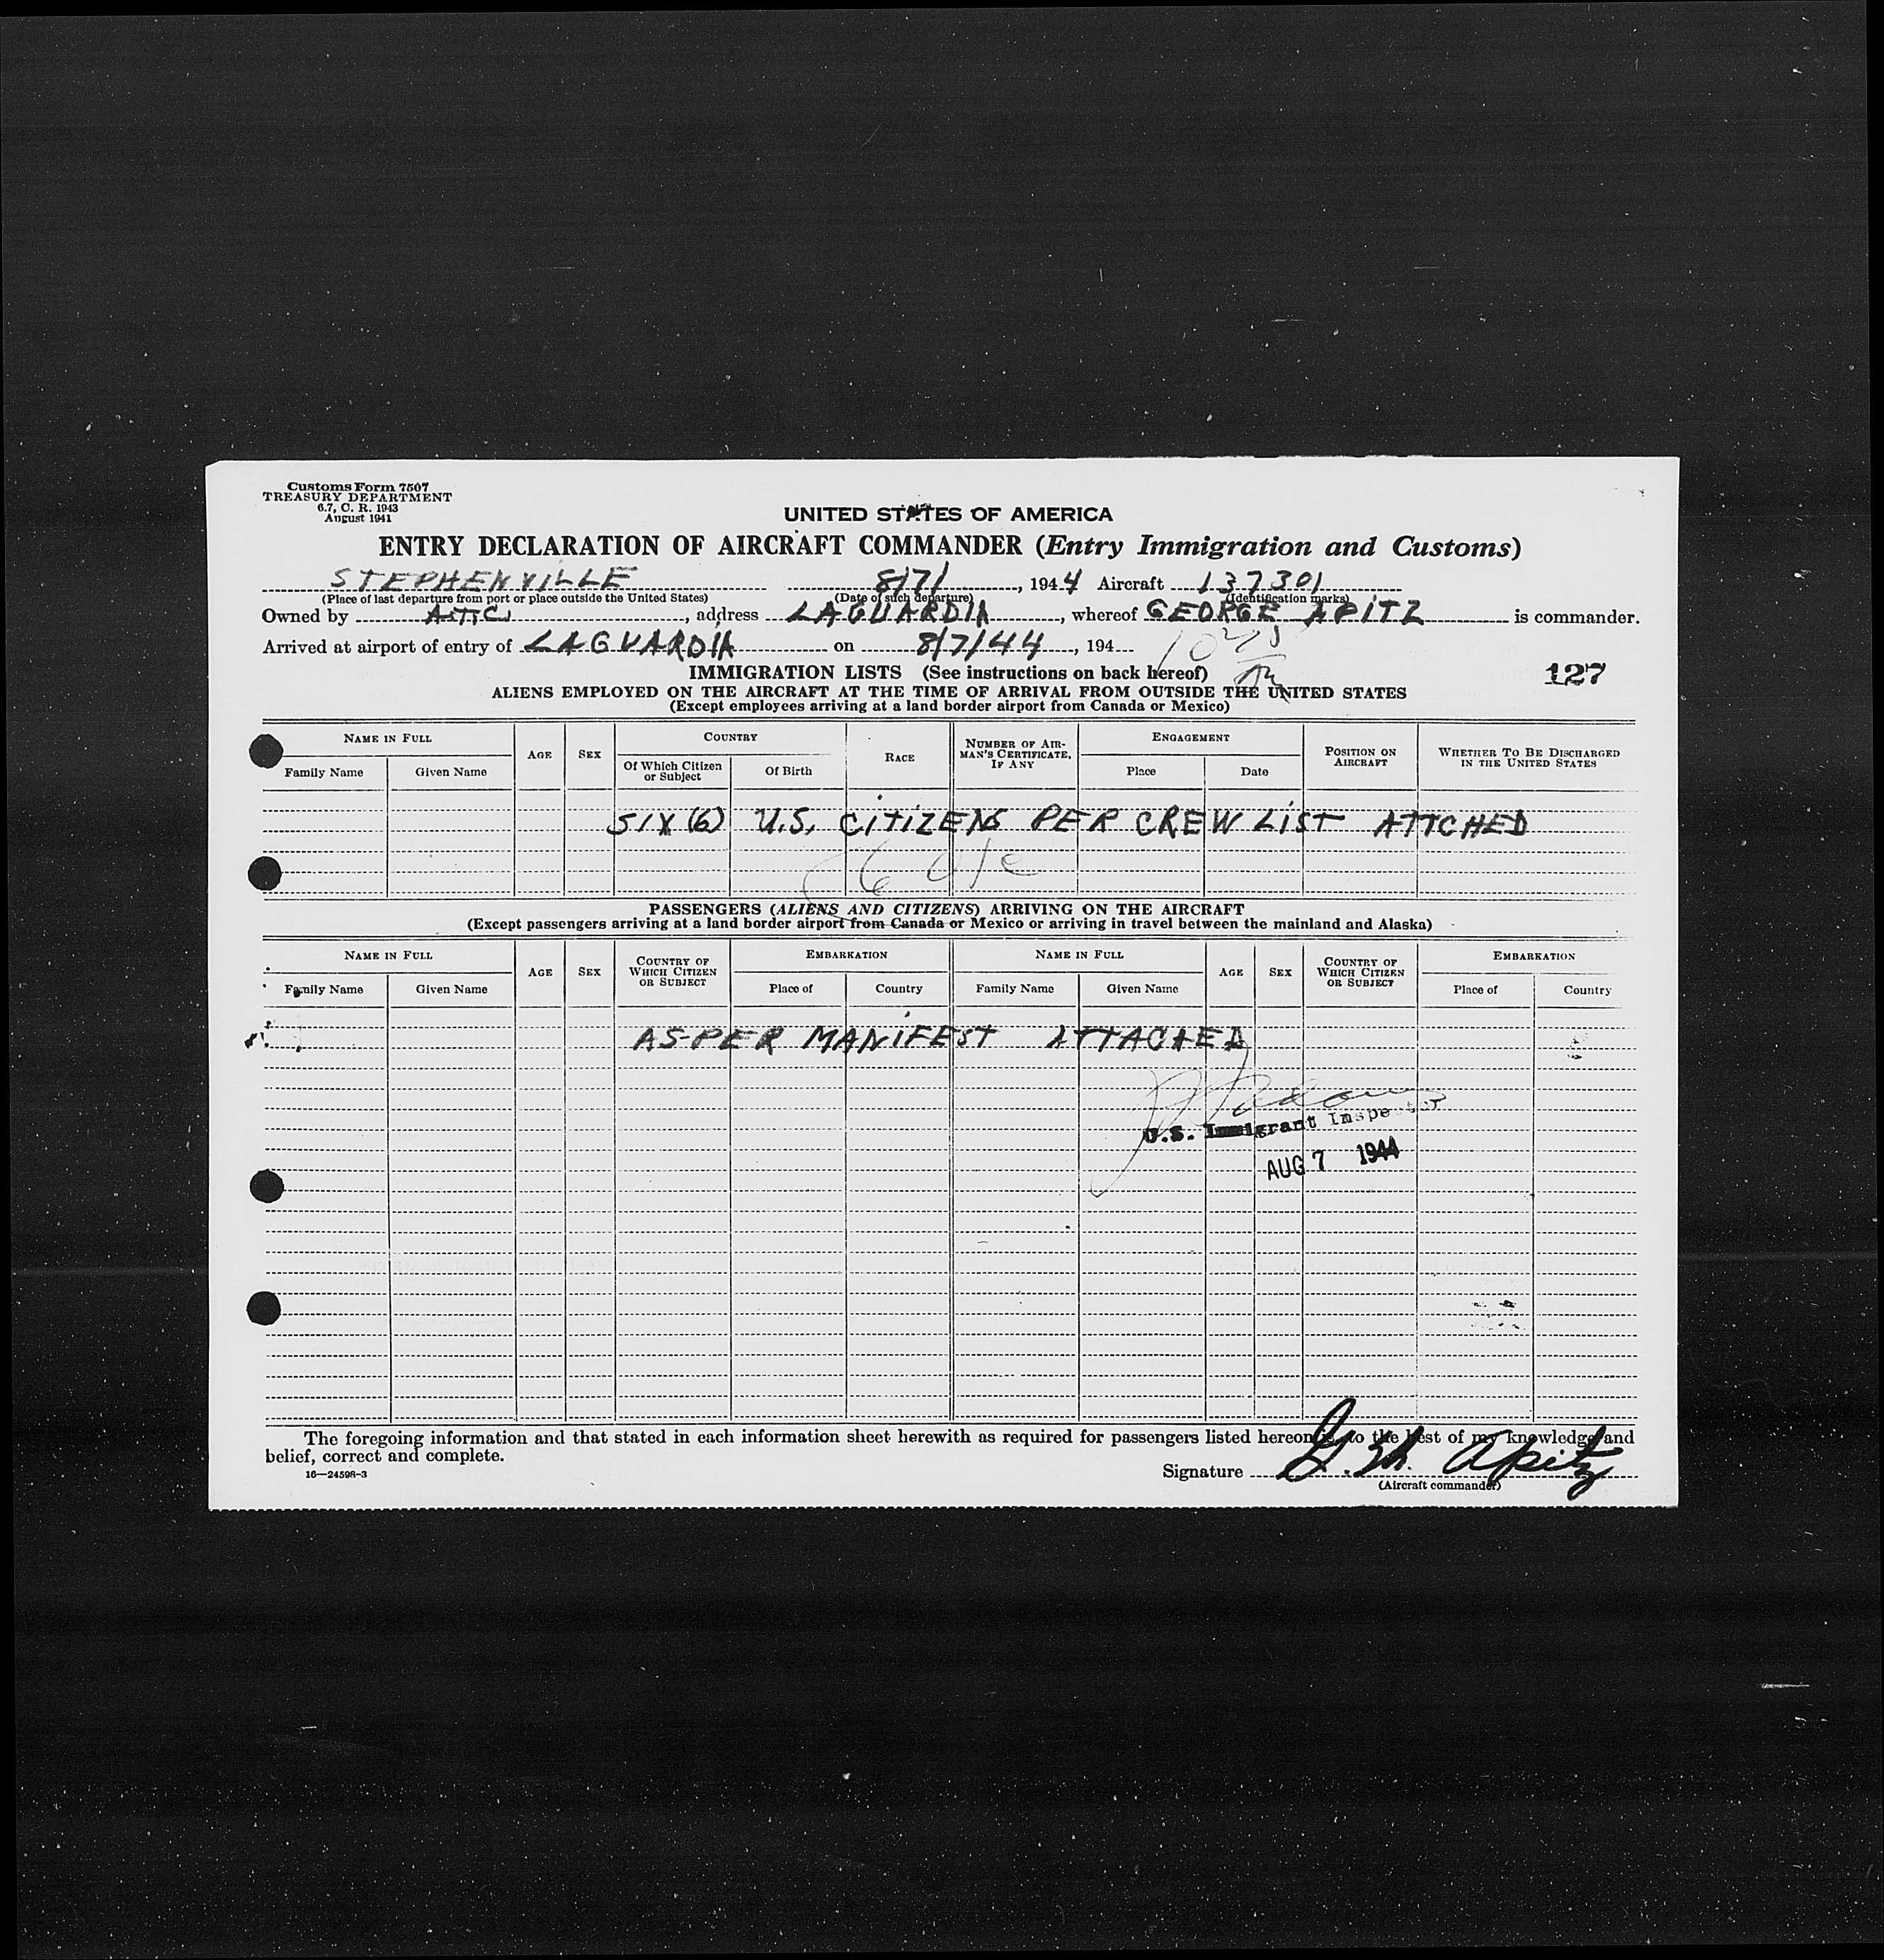 Customs Form 7507
TREASURY DEPARTMENT
6.7, C. R. 1943
August 1941
UNITED STATES OF AMERICA
ENTRY DECLARATION OF AIRCRAFT COMMANDER (Entry Immigration and Customs)
STEPHENVILLE 8/7/, 1944 Aircraft 137301
(Place of last departure from port or place outside the United States) (Date of such departure) (Identification marks)
Owned by A.T.C., address LAGUARDIA, whereof GEORGE APITZ is commander.
Arrived at airport of entry of LAGUARDIA on 8/7/44, 194
IMMIGRATION LISTS (See instructions on back hereof)
127
ALIENS EMPLOYED ON THE AIRCRAFT AT THE TIME OF ARRIVAL FROM OUTSIDE THE UNITED STATES
(Except employees arriving at a land border airport from Canada or Mexico)
NAME IN FULL AGE SEX COUNTRY RACE NUMBER OF AIRMAN'S CERTIFICATE, IF ANY ENGAGEMENT POSITION ON AIRCRAFT WHETHER TO BE DISCHARGED IN THE UNITED STATES
Family Name Given Name Of Which Citizen or Subject Of Birth Place Date
SIX (6) U.S. CITIZENS PER CREW LIST ATTCHED
PASSENGERS (ALIENS AND CITIZENS) ARRIVING ON THE AIRCRAFT
(Except passengers arriving at a land border airport from Canada or Mexico or arriving in travel between the mainland and Alaska)
NAME IN FULL AGE SEX COUNTRY OF WHICH CITIZEN OR SUBJECT EMBARKATION NAME IN FULL AGE SEX COUNTRY OF WHICH CITIZEN OR SUBJECT EMBARKATION
Family Name Given Name Place of Country Family Name Given Name Place of Country
AS PER MANIFEST ATTACHED
U.S. Immigrant Inspector
AUG 7 1944
The foregoing information and that stated in each information sheet herewith as required for passengers listed hereon is, to the best of my knowledge and
belief, correct and complete.
16—24598-3
Signature G. M. Apitz
(Aircraft commander)